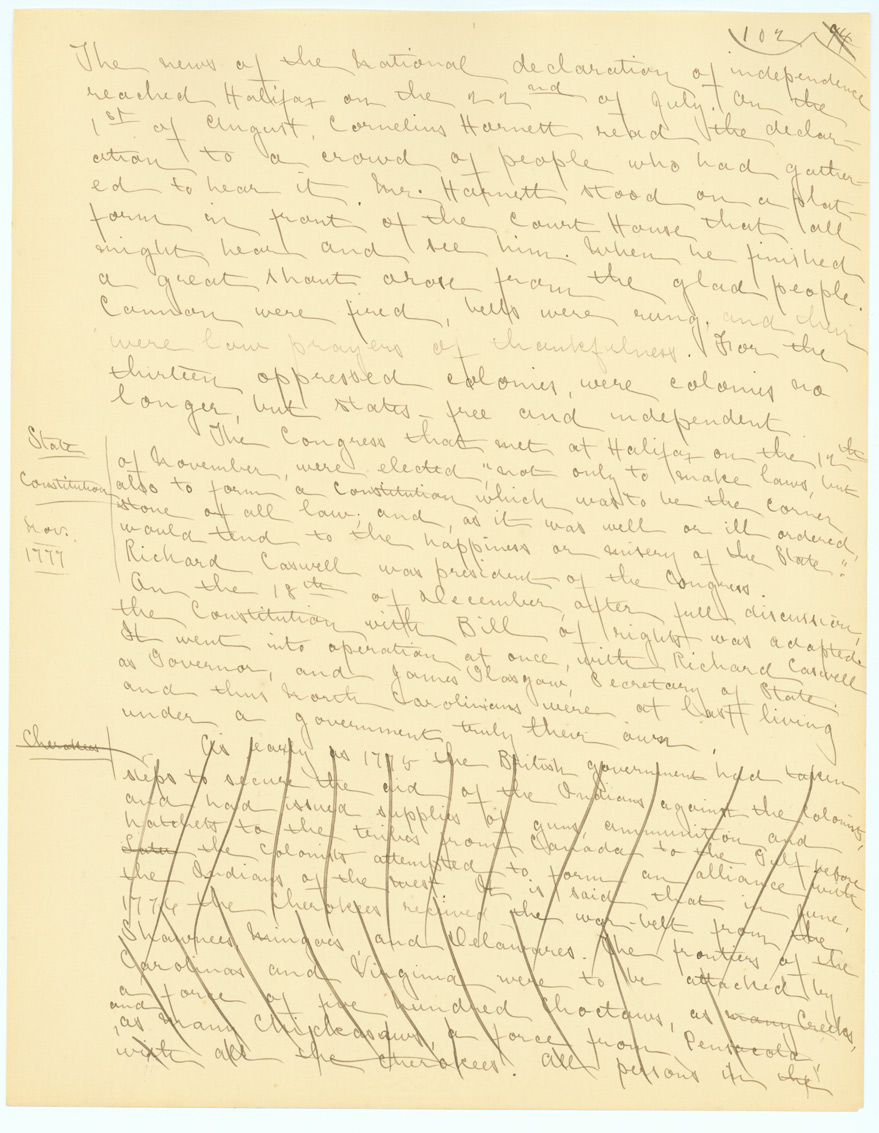 102 94
The news of the National declaration of independence
reached Halifax on the 22nd of July. On the
1st of August, Cornelius Harnett read the declar-
ation to a crowd of people who had gather-
ed to hear it. Mr. Harnett stood on a plat-
form in front of the Court House that all
might hear and see him. When he finished
a great shout arose from the glad people.
Cannon were fired, bells were rung, and there
were low prayers of thankfulness. For the
thirteen oppressed colonies, were colonies no
longer, but States - free and independent
The Congress that met at Halifax on the 12th
State
of November, were elected, "not only to make laws, but
Constitution
also to form a Constitution which was to be the corner
stone of all law; and, as it was well or ill ordered,
Nov.
would tend to the happiness or misery of the State."
1777
Richard Caswell was president of the Congress.
On the 18th of December, after full discussion,
the Constitution with Bill of rights was adopted.
It went into operation at once, with Richard Caswell
as Governor, and James Glasgow, Secretary of State.
and thus North Carolinians were at last living
under a government truly their own.
Cherokees
As early as 1775 the British government had taken
steps to secure the aid of the Indians against the colonists,
and had issued supplies of guns, ammunition and
hatchets to the tribes from Canada to the Gulf before
Later the colonists attempted to form an alliance with
the Indians of the west. It is said that in June,
1776 the Cherokees received the war-belt from the
Shawnees, Mingoes, and Delawares. The frontiers of the
Carolinas and Virginia were to be attacked by
a force of five hundred Choctaws, as many Creeks,
and
as many Chickasaws, a force from Pensacola
with all the Cherokees. All persons in the"